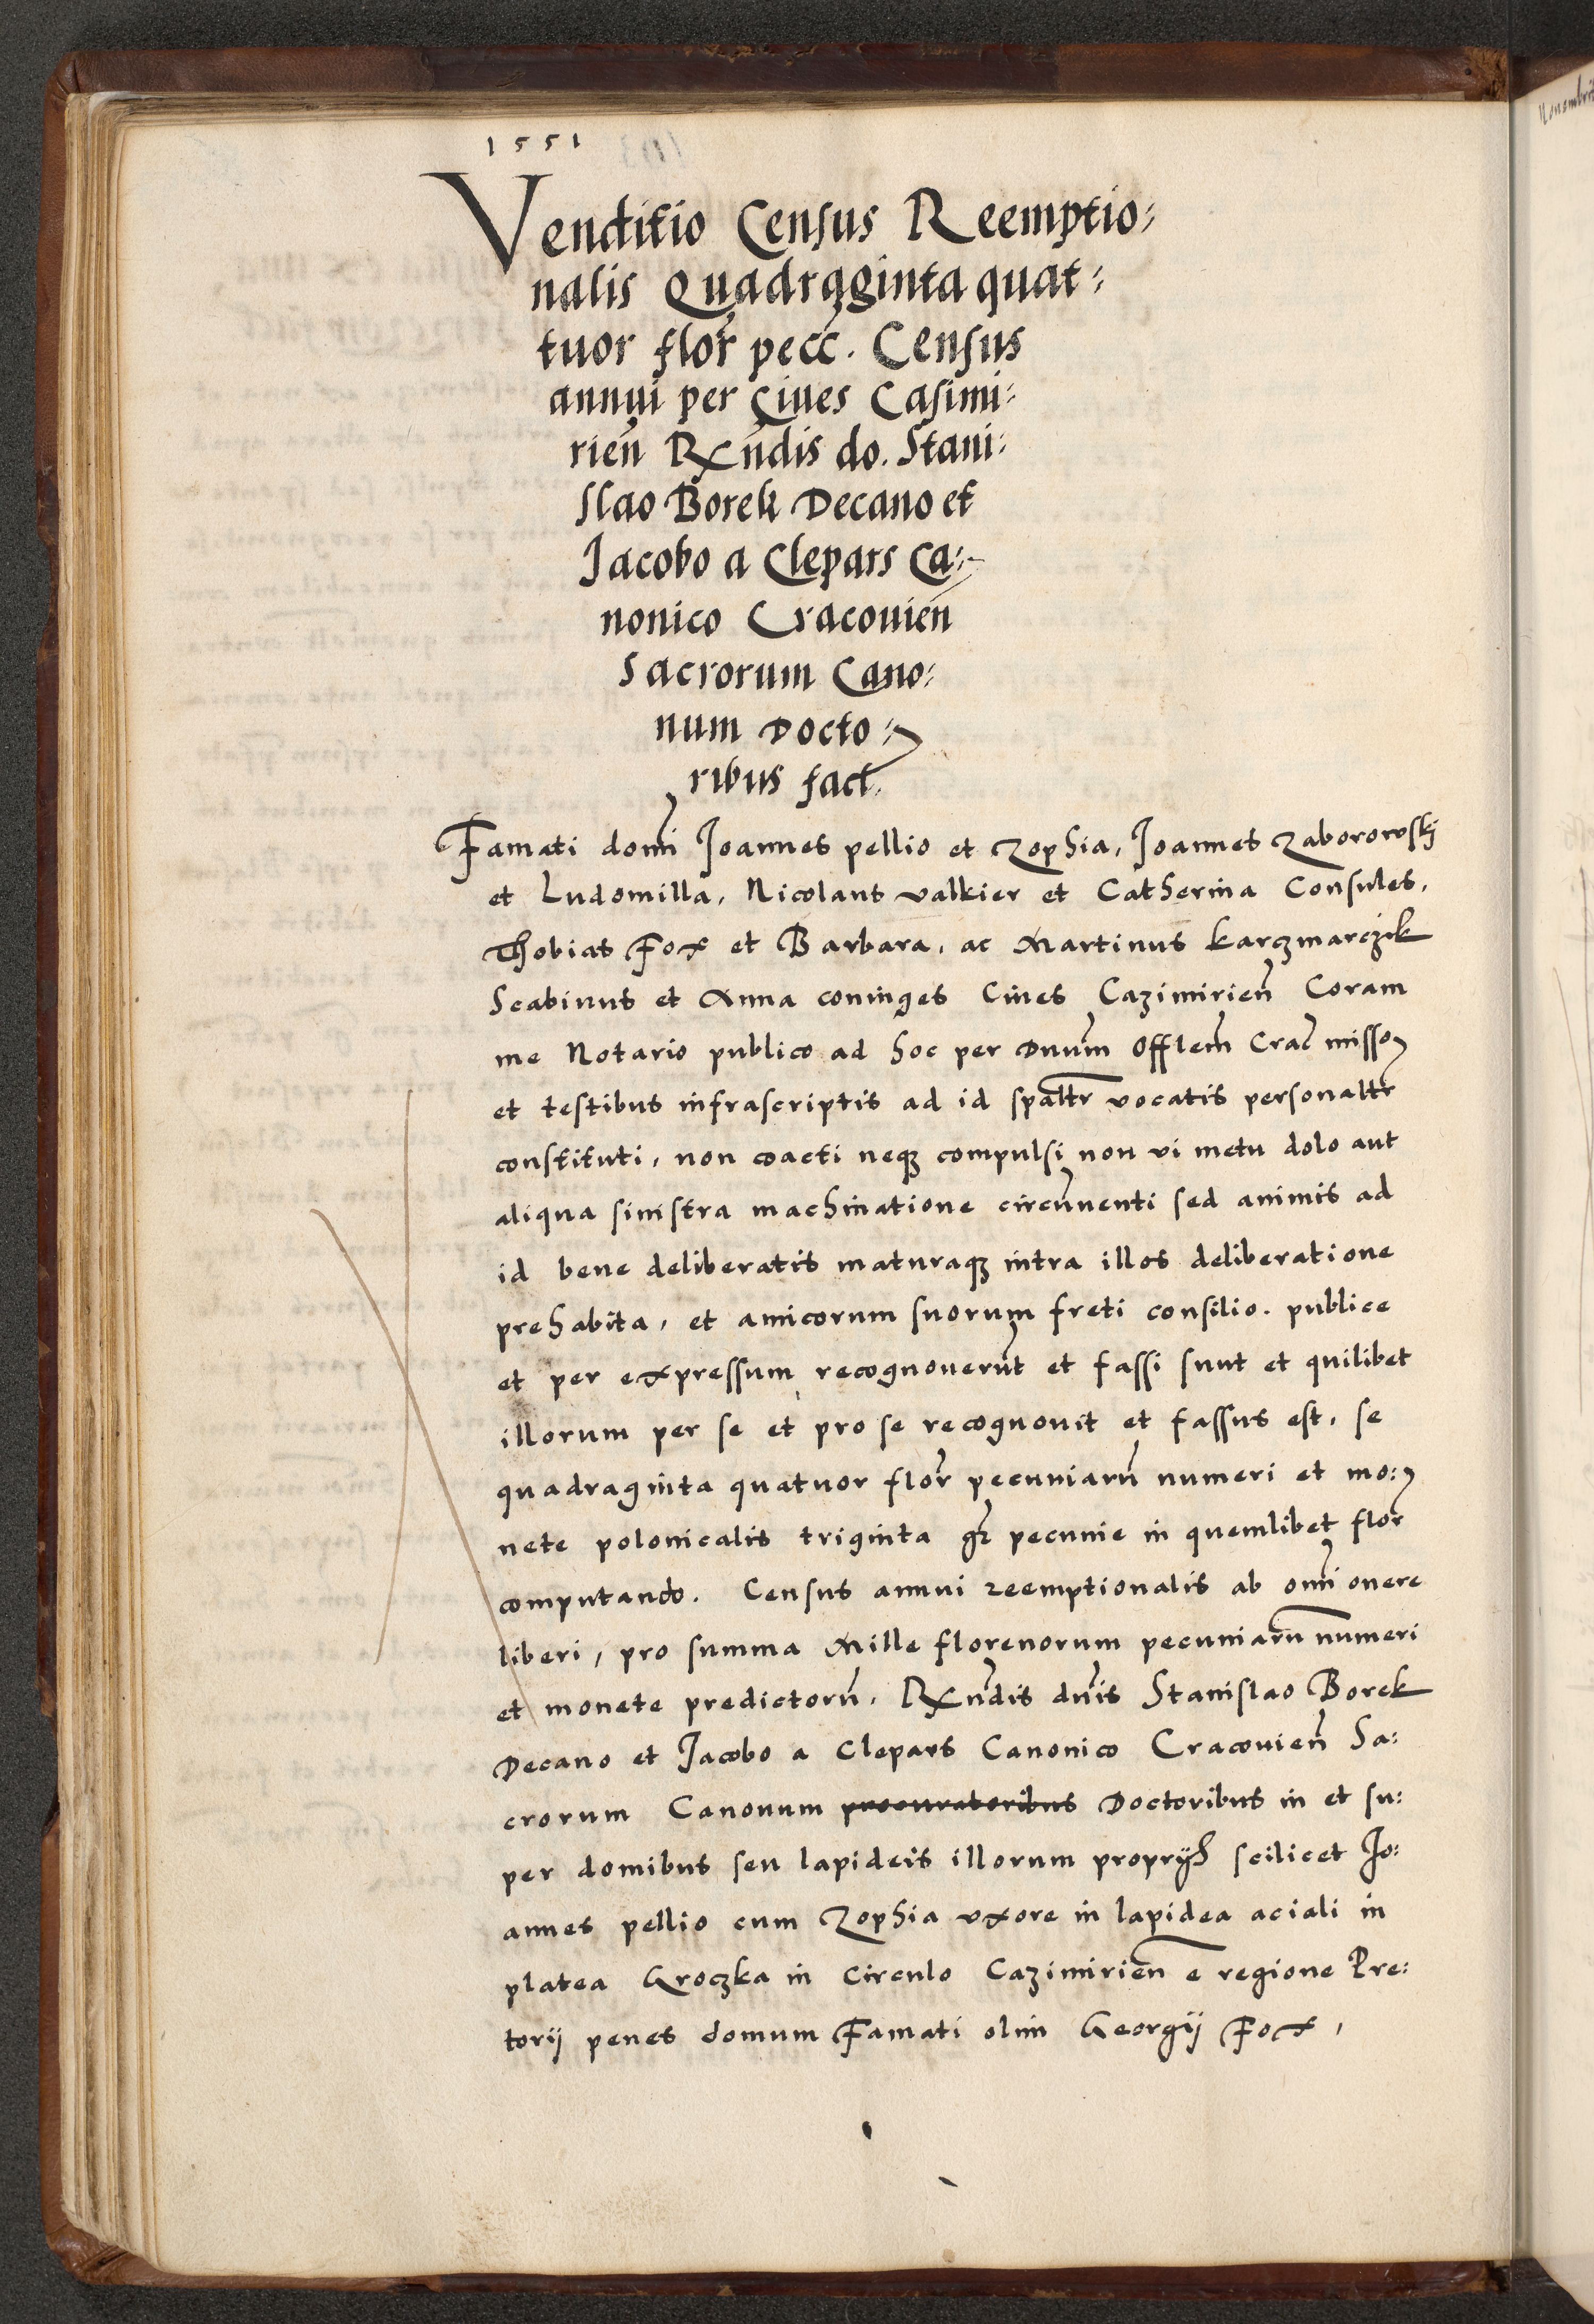 1551
Venditio Census Reemptio⸗
nalis Quadraginta quat⸗
tuor flor̃ pecc̃. Census
annui per Ciues Casimi⸗
rien̄ Rx̄ndis do. Stani⸗
slao Borek Decano et
Jacobo a Clepars Ca⸗
nonico Cracouien̄
Sacrorum Cano⸗
num Docto⸗
ribus fact.
Famati domĩ Joannes pellio et Zophia, Joannes Zaborowskj
et Ludomilla, Nicolaus valkier et Catherina Consules,
Thobias Fox et Barbara, ac Martinus karczmarczik
Scabinus et Anna coniuges Ciues Cazimirien̄ Coram
me Notario publico ad hoc per Dnum̃ Offlem̃ Crac̃ misso
et testibus infrascriptis ad id spaltr̃ vocatis personaltr̃
constituti, non coacti neqꝫ compulsi non vi metu dolo aut
aliqua sinistra machinatione circũuenti sed animis ad
id bene deliberatis maturaqꝫ intra illos deliberatione
prehabita, et amicorum suorum freti consilio. publice
et per expressum recognouerũt et fassi sunt et quilibet
illorum per se et pro se recognouit et fassus est, se
quadraginta quatuor flor̃ pecuniarũ numeri et mo:
nete polonicalis triginta gr̃ pecunie in quemlibet flor̃
computando. Census annui reemptionalis ab om̃i onere
liberi, pro summa Mille florenorum pecuniarũ numeri
et monete predictorũ, Rx̃ndis dnĩs Stanislao Borek
Decano et Jacobo a Clepars Canonico Cracouien̄ Sa:
crorum Canonum procuratoribus Doctoribus in et su:
per domibus seu lapideis illorum proprijs scilicet Jo:
annes pellio cum Zophia vxore in lapidea aciali in
platea Groczka in Circulo Cazimirien̄ e regione Pre:
torij penes domum Famati olim Georgij Fox,